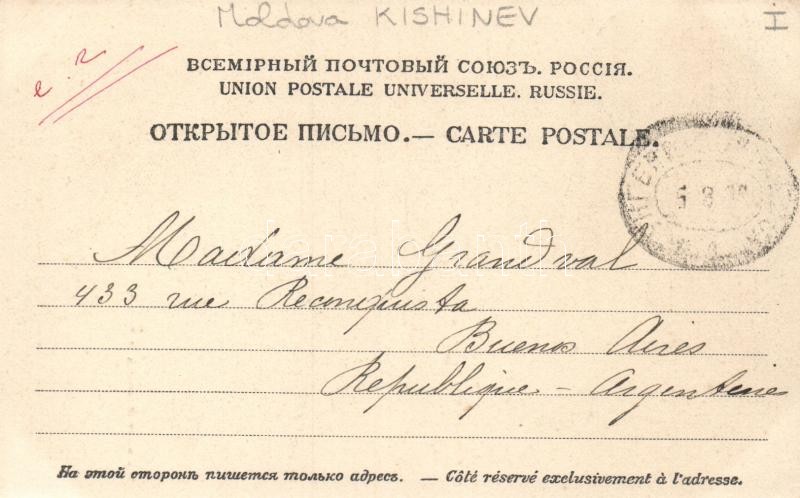 Moldova KISHINEV
I
ВСЕМІРНЫЙ ПОЧТОВЫЙ СОЮЗЪ. РОССІЯ.
UNION POSTALE UNIVERSELLE. RUSSIE.
ОТКРЫТОЕ ПИСЬМО.— CARTE POSTALE.
Madame Grandval
433 rue Reconquista
Buenos Aires
Republique - Argentine
На этой сторонѣ пишется только адресъ. — Côté réservé exclusivement à l'adresse.